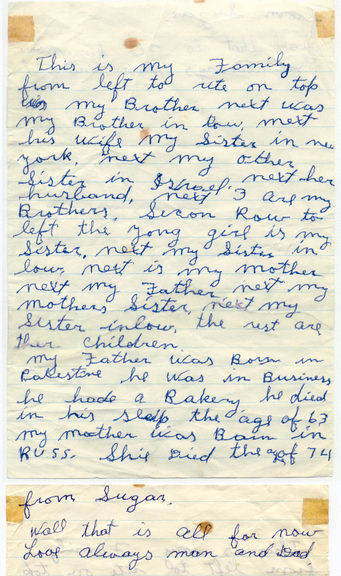 This is my Family
from left to rite on top
is my Brother next was
my Brother in low, next
his wife my Sister in new
york. next my other
Sister in Israel. next her
hurband, next 3 are my
Brothers. Secon Row to
left the yong girl is my
Sister, next my Sister in
low, next is my mother
next my Father next my
mothers Sister, next my
Sister inlow, the rest are
ther children.
my Father was Born in
Palestine he was in Business
he hade a Bakery he died
in his sleep the age of 63
my mother was Born in
RUSS. She Died the age of 74
from Sugar.
Wall that is all for now
Love always mom and Dad